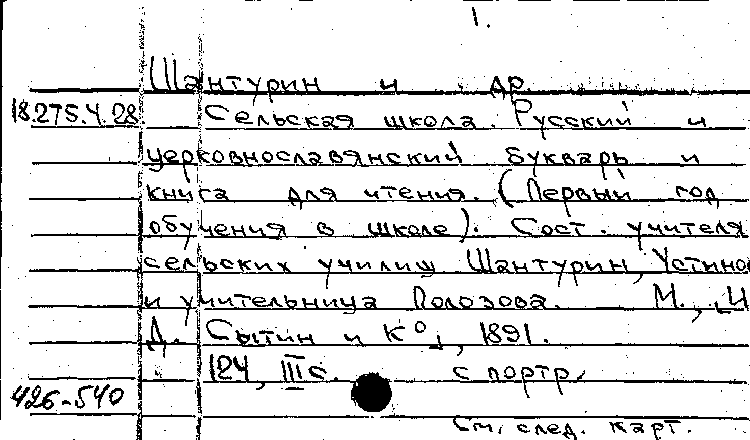 1.
Шантурин и др.
18.275.4.28 Сельская школа. Русский и
церковнославянский букварь и
книга для чтения. (Первый год
обучения в школе). Сост. учителя
сельских училищ Шантурин, Устинов
и учительница Полозова. М., [И.
Д. Сытин и К°], 1891.
124, III с. с портр.
426-540
См. след. карт.